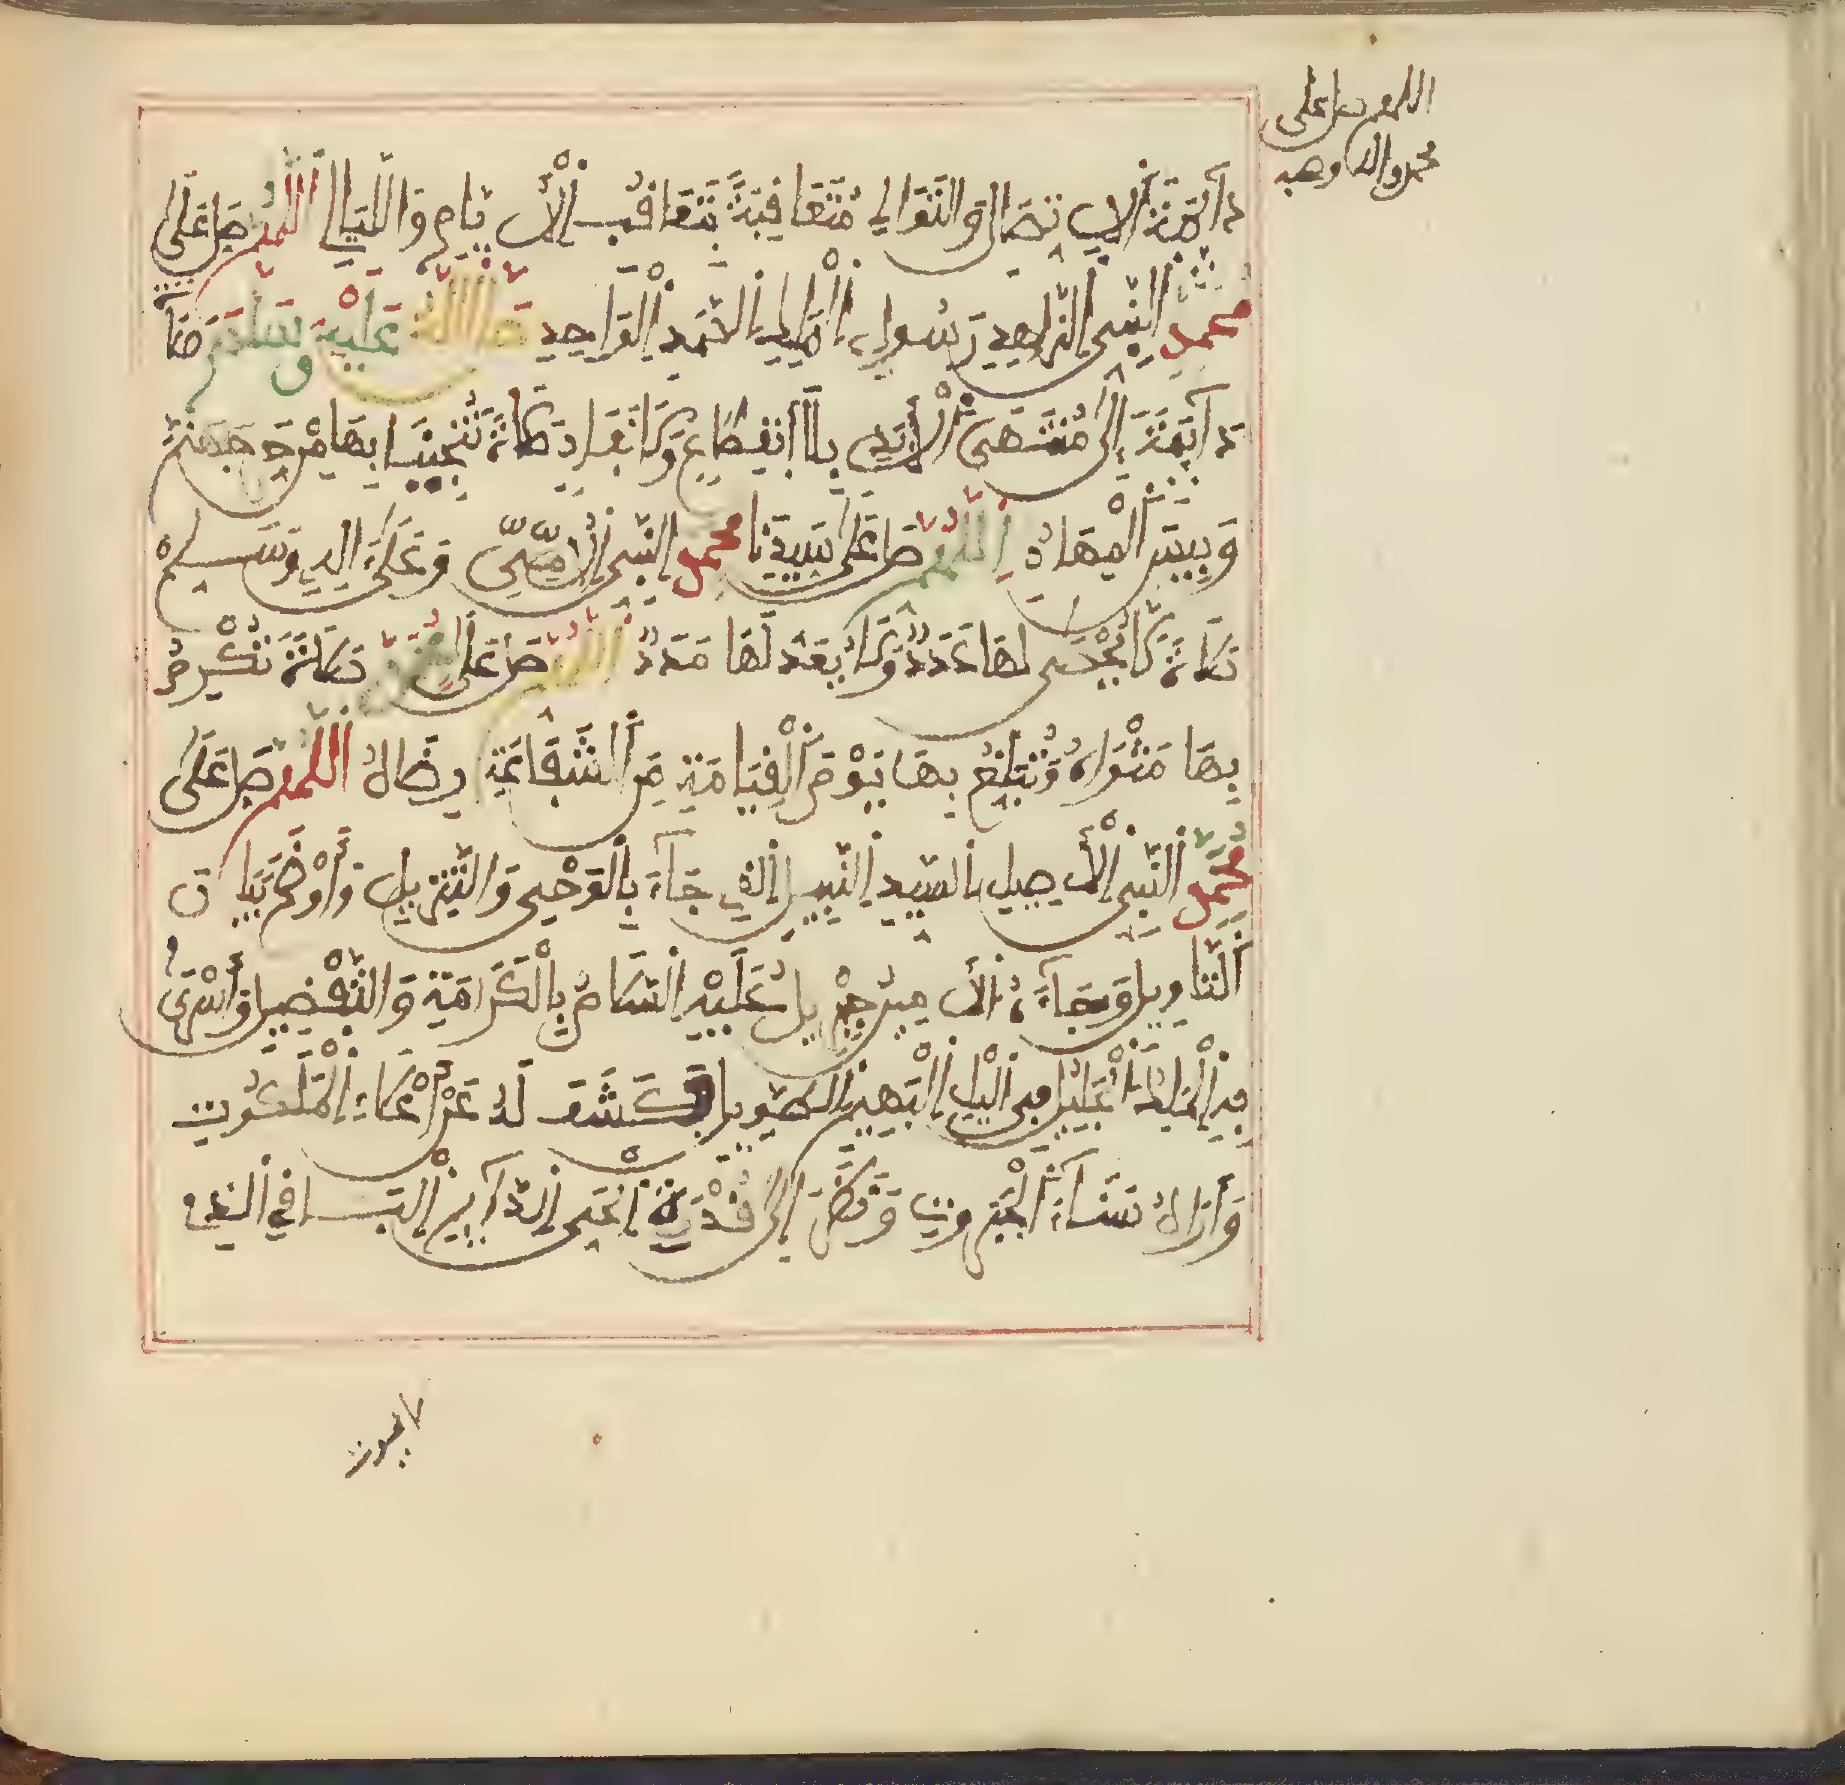 اللهم صل على
محمد واله وصحبه
دَآئِمَةَ الِاتِّصَالِ وَالتَّوَالِي مُتَعَاقِبَةً بِتَعَاقُبِ الْأَيَّامِ وَاللَّيَالِي اللَّهُمَّ صَلِّ عَلَى
مُحَمَّدٍ النَّبِيِّ الزَّاهِدِ رَسُولِ الْمَلِكِ الصَّمَدِ الْوَاحِدِ صَلَّى اللَّهُ عَلَيْهِ وَسَلَّمَ صَلَاةً
دَآئِمَةً إِلَى مُنْتَهَى الْأَبَدِ بِلَا انْقِطَاعٍ وَلَا نَفَادٍ صَلَاةً تُنْجِينَا بِهَا مِنْ حَرِّ جَهَنَّمَ
وَبِيسَ الْمِهَادُ اللَّهُمَّ صَلِّ عَلَى سَيِّدِنَا مُحَمَّدٍ النَّبِيِّ الْأُمِّيِّ وَعَلَى آلِهِ وَسَلِّمْ
صَلَاةً لَا يُحْصَى لَهَا عَدَدٌ وَلَا يُعَدُّ لَهَا مَدَدٌ اللَّهُمَّ صَلِّ عَلَى مُحَمَّدٍ صَلَاةً تُكْرِمُ
بِهَا مَثْوَاهُ وَتُبَلِّغُ بِهَا يَوْمَ الْقِيَامَةِ مِنَ الشَّفَاعَةِ رِضَاهُ اللَّهُمَّ صَلِّ عَلَى
مُحَمَّدٍ النَّبِيِّ الْأَصِيلِ السَّيِّدِ النَّبِيلِ الَّذِي جَآءَ بِالْوَحْيِ وَالتَّنْزِيلِ وَأَوْضَحَ بَيَانَ
التَّأْوِيلِ وَجَآءَهُ الْأَمِينُ جِبْرِيلُ عَلَيْهِ السَّلَامُ بِالْكَرَامَةِ وَالتَّفْضِيلِ وَأَسْرَى
بِهِ الْمَلِكُ الْجَلِيلُ فِي اللَّيْلِ الْبَهِيمِ الطَّوِيلِ فَكَشَفَ لَهُ عَنْ أَعْلَى الْمَلَكُوتِ
وَأَرَاهُ سَنَاءَ الْجَبَرُوتِ وَنَظَرَ إِلَى قُدْرَةِ الْحَيِّ الدَّآئِمِ الْبَاقِي الَّذِي
لا يموت